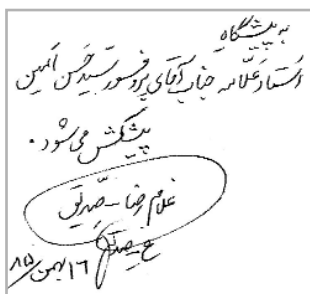 به پیشگاه
استاد علّامه جناب آقای پروفسور سید حسن امین
پیشکش می‌شود.
غلامرضا صدیق
غ صدیق
۱۶ بهمن ۸۵